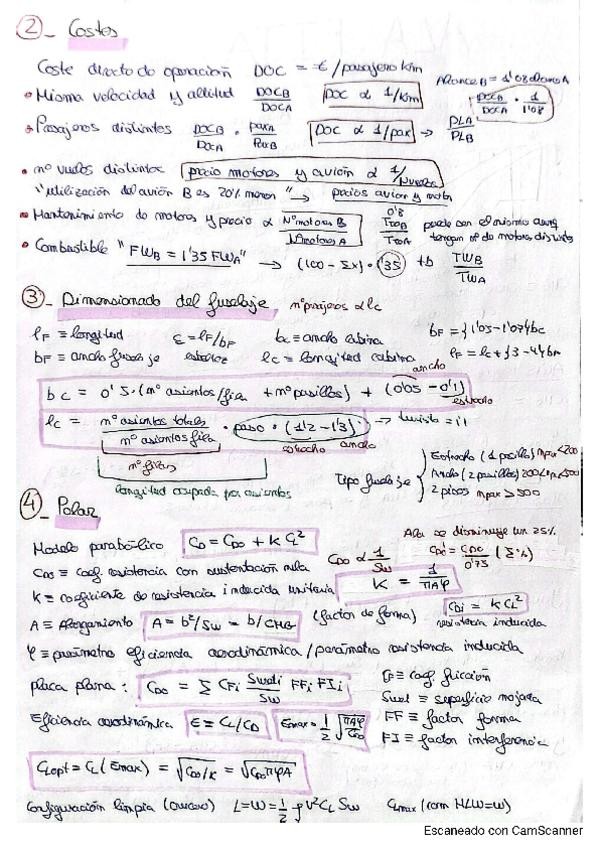 2_ Costes
Coste directo de operación DOC = €/pasajero km
Alcance B = 1'08 alcance A
• Misma velocidad y altitud DOC_B/DOC_A DOC ∝ 1/km DOC_B/DOC_A · 1/1'08
• Pasajeros distintos DOC_B/DOC_A · pax_A/pax_B DOC ∝ 1/pax → PL_A/PL_B
• nº vuelos distintos precio motores y avión ∝ 1/Nvuelos
"utilización del avión B es 20% menor" → precios avión y motor 0'8
• Mantenimiento de motores y precio ∝ Nºmotores B/Nºmotores A T_TO B/T_TO A puede ser el mismo aunq tengan nº de motores distinto
• Combustible "FW_B = 1'35 FW_A" → (100 - Σx) · 1'35 tb TW_B/TW_A
3_ Dimensionado del fuselaje nº pasajeros ∝ lc
l_F ≡ longitud ε = l_F/b_F bc ≡ ancho cabina b_F = {1'05 - 1'07} bc
b_F ≡ ancho fuselaje esbeltez lc ≡ longitud cabina l_F = lc + {3 - 4} b_F
bc = 0'5 · (nº asientos/fila + nº pasillos) + (0'05 - 0'1)
ancho
estrecho
lc = nº asientos totales/nº asientos fila · paso · (1'2 - 1'3) → turista = 1
estrecho ancho
nº filas
longitud ocupada por asientos
Tipo fuselaje { Estrecho (1 pasillo) npax < 200
Ancho (2 pasillos) 200 < npax < 500
2 pisos npax > 500
4_ Polar
Ala se disminuye un 25%
Modelo parabólico C_D = C_D0 + k C_L² C_D0 ∝ 1/Sw C_D0' = C_D0/0'75 (Σ%)
C_D0 ≡ coef. resistencia con sustentación nula
K = 1/πAφ
K ≡ coeficiente de resistencia inducida unitaria
A ≡ Alargamiento A = b²/Sw = b/CMG (factor de forma) C_Di = k C_L²
resistencia inducida
φ ≡ parámetro eficiencia aerodinámica / parámetro resistencia inducida
placa plana: C_D0 = Σ C_Fi Sweti/Sw FF_i FI_i
C_F ≡ coef fricción
Swet ≡ superficie mojada
Eficiencia aerodinámica E = C_L/C_D Emax = 1/2 √(πAφ/C_D0)
FF ≡ factor forma
FI ≡ factor interferencia
C_Lopt = C_L (Emax) = √(C_D0/k) = √(C_D0 πφA)
Configuración limpia (crucero) L = W = 1/2 ρ V² C_L Sw C_Lmax (con MLW=W)
Escaneado con CamScanner